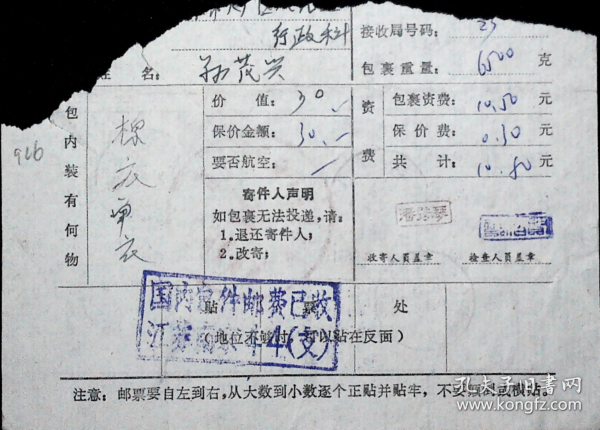 行政科
接收局号码：23
姓名：孙茂兴
包裹重量：6500 克
包内装有何物
棉衣单衣
926
价值：30.—
保价金额：30.—
要否航空：
资费
包裹资费：10.50 元
保价费：0.30 元
共计：10.80 元
寄件人声明
如包裹无法投递，请：
1.退还寄件人；
2.改寄；
收寄人员盖章
检查人员盖章
国内邮件邮费已收
4(支)
贴票处
(地位不够时，可以贴在反面)
注意：邮票要自左到右，从大数到小数逐个正贴并贴牢，不要颠倒或横贴。
孔夫子旧书网
www.kongfz.com